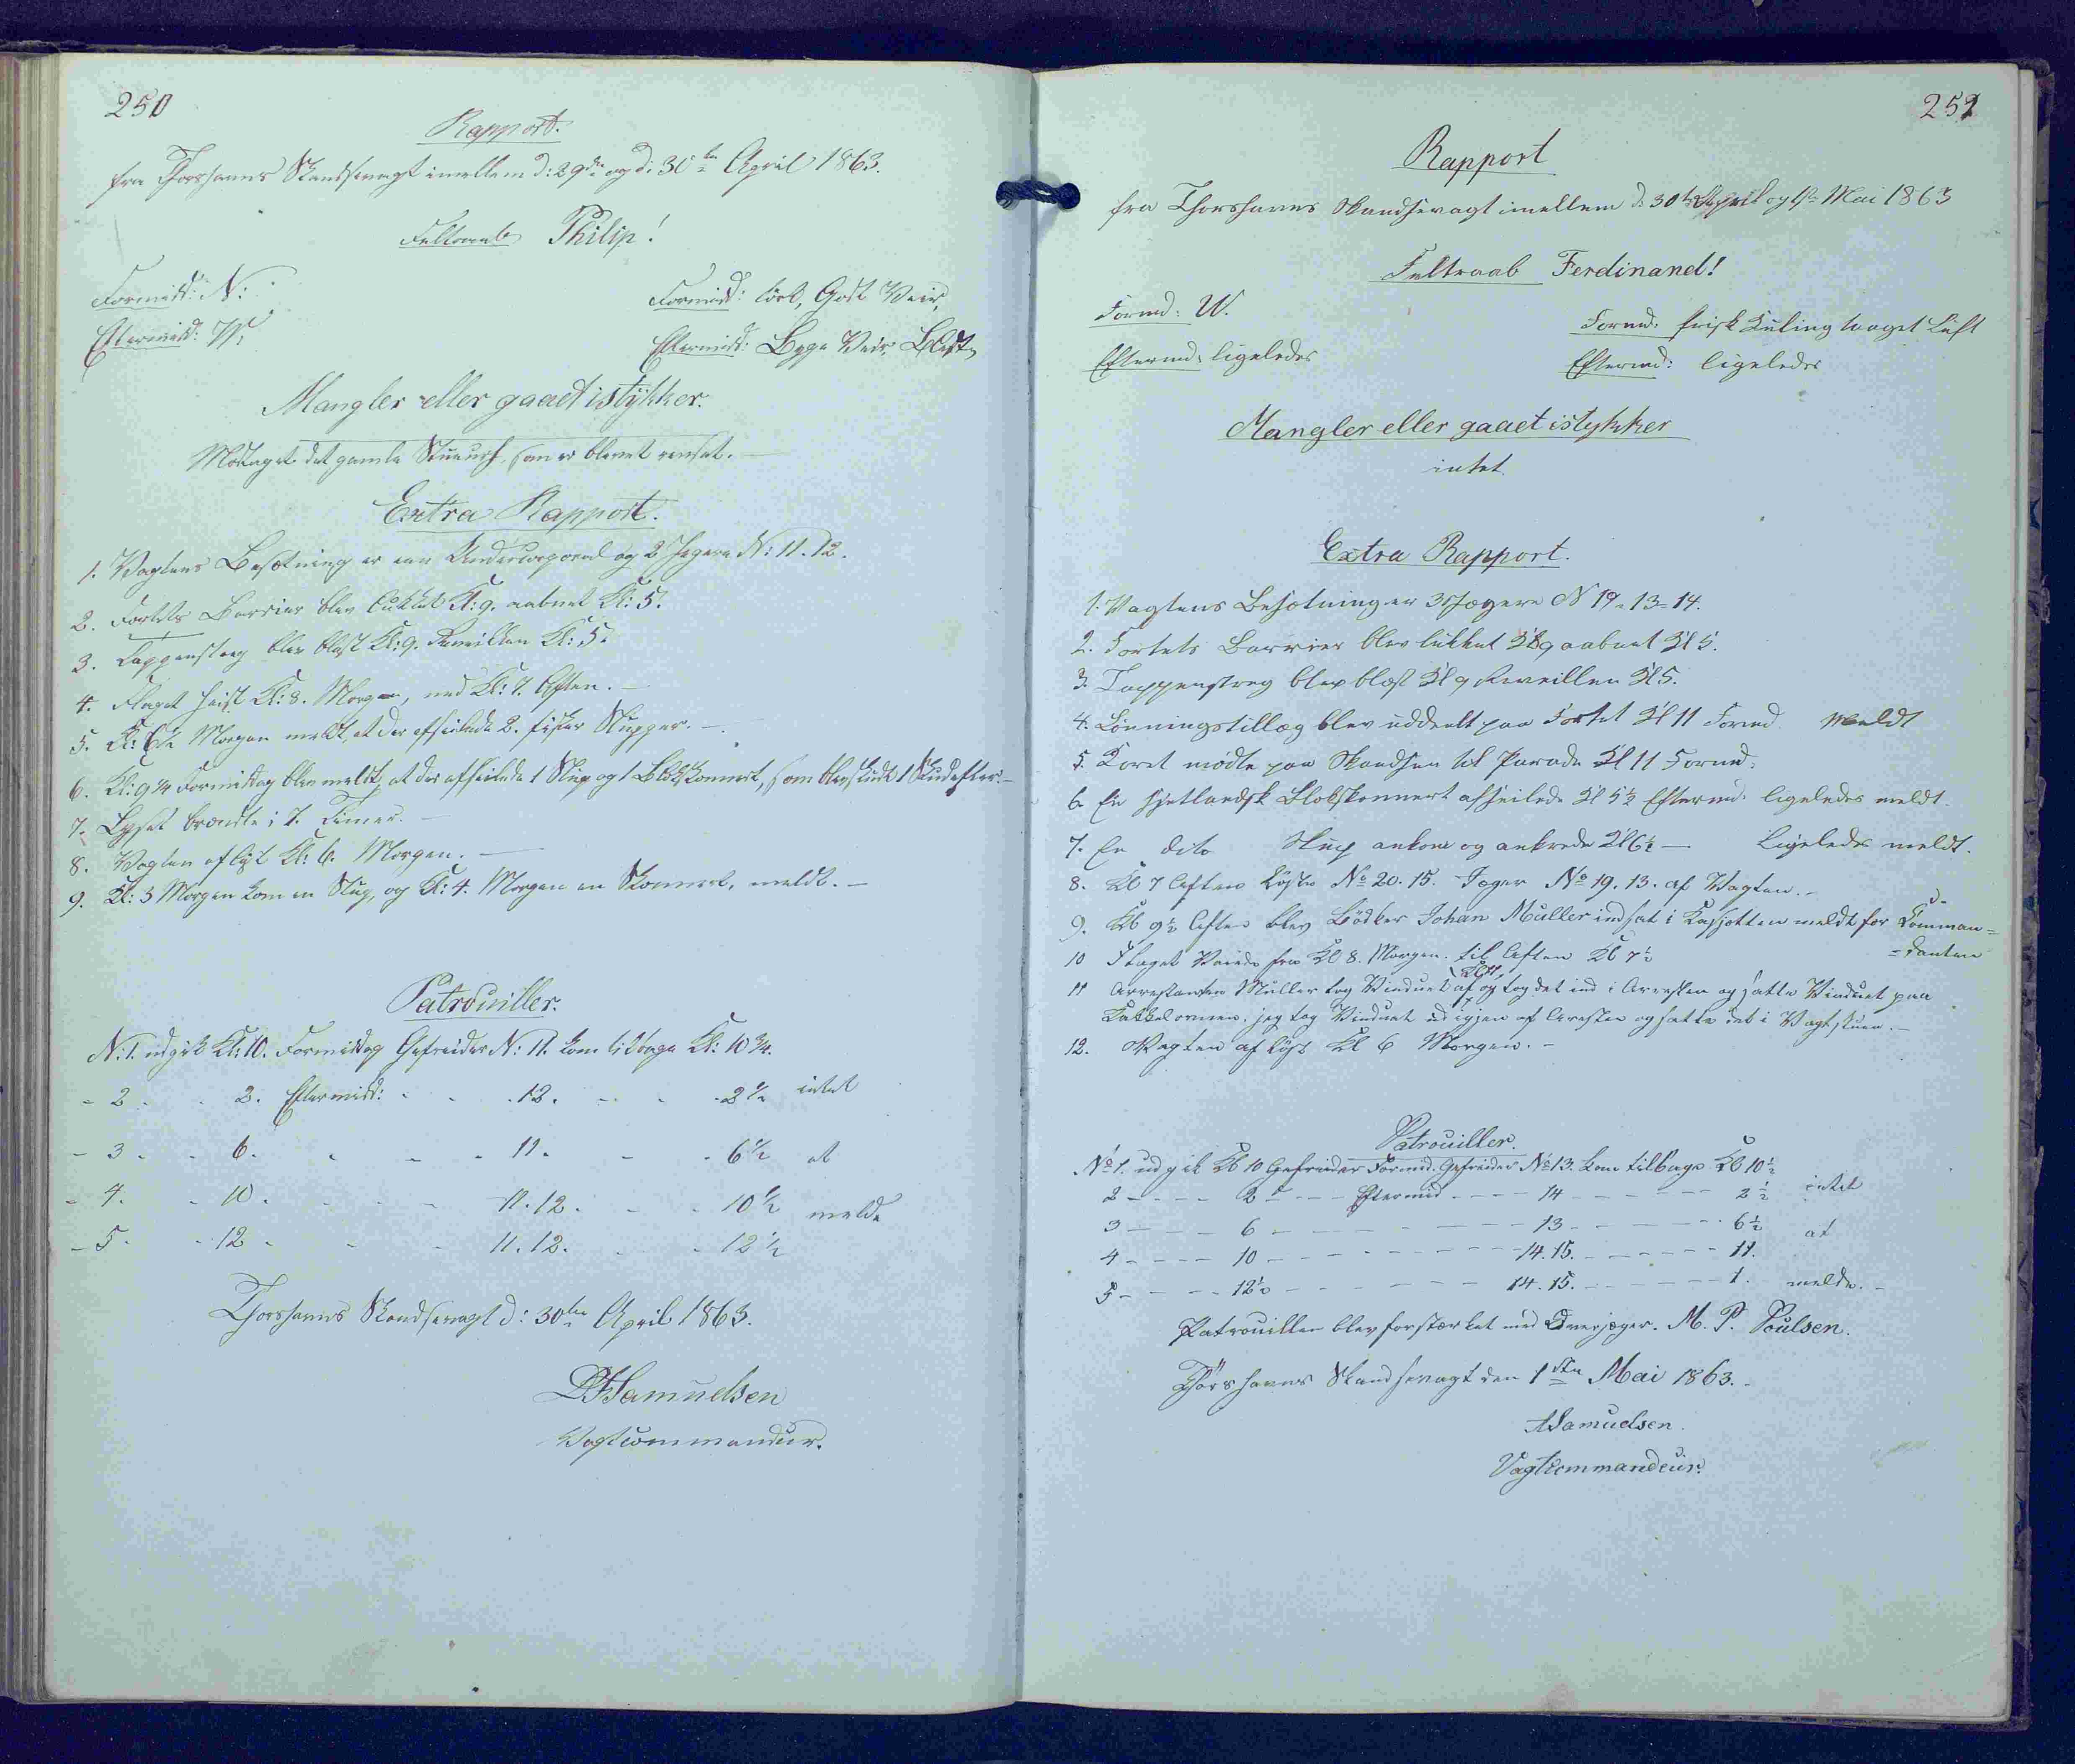 250
Rapport.
fra Thorshavns Skandsevagt imellem d: 29de og d: 30te April 1863.
Feltraab Philip!
Formidd: N:
Formidd: Godt Veir,
Eftermidd: W,
Eftermidd: Byge Veir, Blæst,
Mangler eller gaaet istykker.
Modtaget det gamle Stueuhr, som er blevet renset.
Extra Rapport.
1. Vagtens Besætning er een Undercorporal og 2 Jægere N: 11. 12.
2. Fortets Barrier blev lukket Kl: 9. aabnet Kl: 5.
3. Tappenstreg blev blæst Kl: 9. Reveillen Kl: 5.
4. Flaget heist Kl: 8. Morgen, ned Kl: 7. Aften.
5. Kl: Morgen meldt, at der afseilede 2. fisker Slupper.
6. Kl: 9 1/4 Formiddag blev meldt, at der afseilede 1 Slup og 1 Skonnert, som blev skudt 1 Skud efter.
7. Lyset brændte i 7. Timer.
8. Vagten afløst Kl: 6. Morgen.
9. Kl: 3 Morgen kom en Slup, og Kl: 4. Morgen en Skonnert, meldt.
Patrouiller.
N: 1. udgik Kl: 10. Formiddag Gefreider N: 11. kom tilbage Kl: 10 3/4.
- 2 - - 2. Eftermidd: - - 12. - - - 2 1/2 intet
- 3 - - 6. - - - 11. - - - 6 1/2 at
- 4. - 10. - - - 11. 12. - - 10 1/2 melde
- 5 - - 12 - - - 11. 12. - - 12 1/2
Thorshavns Skandsevagt d: 30te April 1863.
Samuelsen
Vagtcommandeur.
252
Rapport
fra Thorshavns Skandsevagt imellem d: 30te April og 1ste Mai 1863
Feltraab Ferdinand!
Formd: W.
Formd: frisk Kuling taaget Luft
Eftermd: ligeledes
Eftermd: ligeledes
Mangler eller gaaet istykker
intet
Extra Rapport.
1. Vagtens Besætning er 3 Jægere N 19-13-14.
2. Fortets Barrier blev lukket Kl 9 aabnet Kl 5.
3. Tappenstreg blev blæst Kl 9 Reveillen Kl 5.
4. Lønningstillæg blev uddeelt paa Fortet Kl 11 Formd meldt
5. Koret mødte paa Skandsen til Parade Kl 11 Formd.
6. En hjetlandsk Skonnert afseilede Kl 5 1/2 Eftermd. ligeledes meldt.
7. En dito Slup ankom og ankrede Kl 6 1/2 — Ligeledes meldt.
8. Kl 7 Aften løste No 20. 15. Jæger No 19. 13. af Vagten.
9. Kl 9 1/2 Aften blev Bødker Johan Müller indsat i Kasjotten meldt for Komman=
=danten
10 Flaget Vaiede fra Kl 8. Morgen. til Aften Kl 7 1/2
11 Arrestanten Müller tog Vinduet af og tog det ind i Arresten og satte Vinduet paa
Kakkelovnen. jeg tog Vinduet ud igjen af Arresten og satte det i Vagtstuen.
12. Vagten afløst Kl 6 Morgen.
Patrouiller.
No 1. udgik Kl 10 Gefreider Formd. Gefreider No 13. kom tilbage Kl 10 1/2
2 - - - - 2 - - - Eftermd - - - - 14 - - - - - 2 1/2 intet
3 - - - 6 - - - - - - - 13 - - - - - 6 1/2 at
4 - - - - 10 - - - - - - - 14. 15. - - - - - 11.
5 - - - - 12 1/2 - - - - - 14. 15. - - - - - 1. melde.
Patrouillen blev forstærket med Overjæger. M. P. Poulsen.
Thorshavns Skandsevagt den 1ste Mai 1863.
Samuelsen.
Vagtkommandeur.